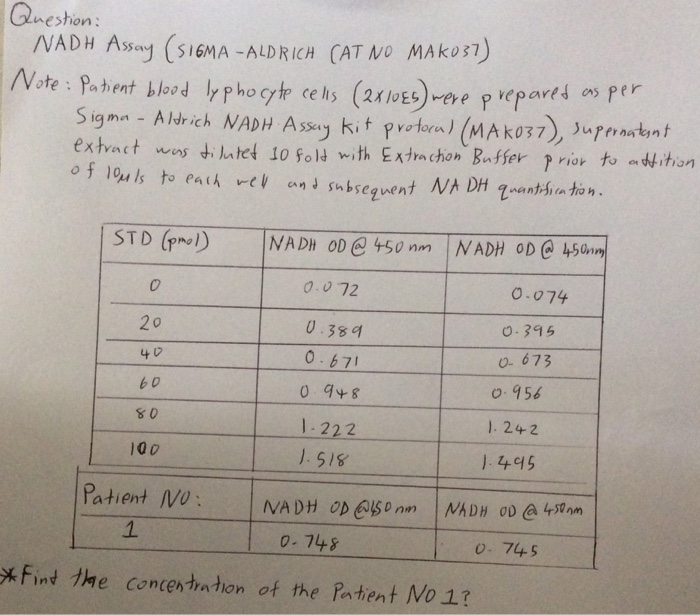 Question:
NADH Assay (SIGMA-ALDRICH CAT NO MAK037)
Note: Patient blood lyphocyte cells (2X10E5) were prepared as per
Sigma-Aldrich NADH Assay Kit protocal (MAK037), supernatant
extract was diluted 10 fold with Extraction Buffer prior to addition
of 10µls to each well and subsequent NADH quantification.
STD (pmol) NADH OD @ 450 nm NADH OD @ 450nm
0 0.072 0.074
20 0.389 0.395
40 0.671 0.673
60 0.948 0.956
80 1.222 1.242
100 1.518 1.495
Patient NO: NADH OD @450 nm NADH OD @ 450nm
1 0.748 0.745
*Find the concentration of the Patient NO 1?